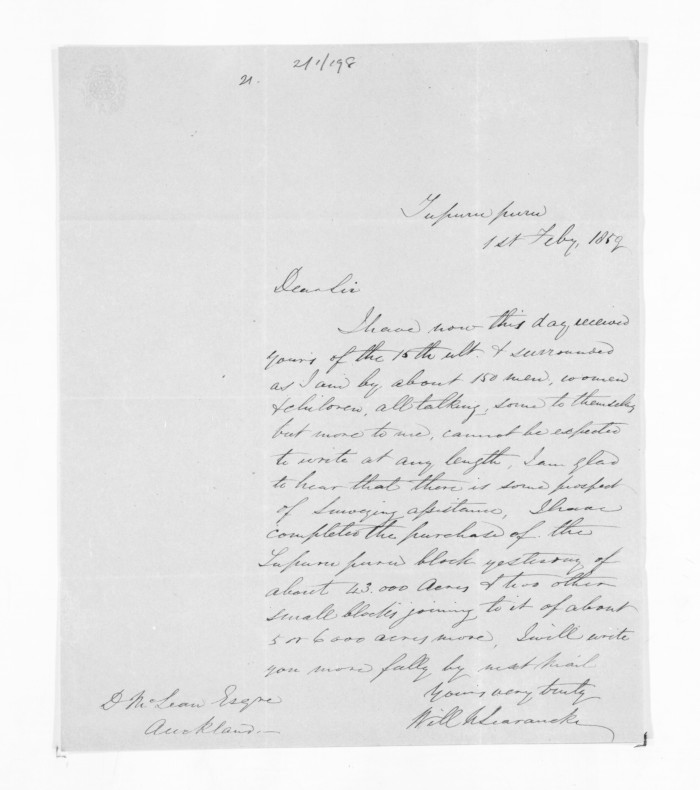 21/1/198
21.
Tupurupuru
1st Feby, 1859
Dear Sir
I have now this day received
yours of the 15th ult. & surrounded
as I am by about 150 men, women
& children, all talking, some to themselves
but more to me, cannot be expected
to write at any length, I am glad
to hear that there is some prospect
of Surveying assistance, I have
completed the purchase of the
Tupurupuru block yesterday of
about 43.000 Acres & two other
small blocks joining to it of about
5 or 6000 acres more, I will write
you more fully by next mail
Yours very truly
Will N Searancke
D McLean Esqre
Auckland